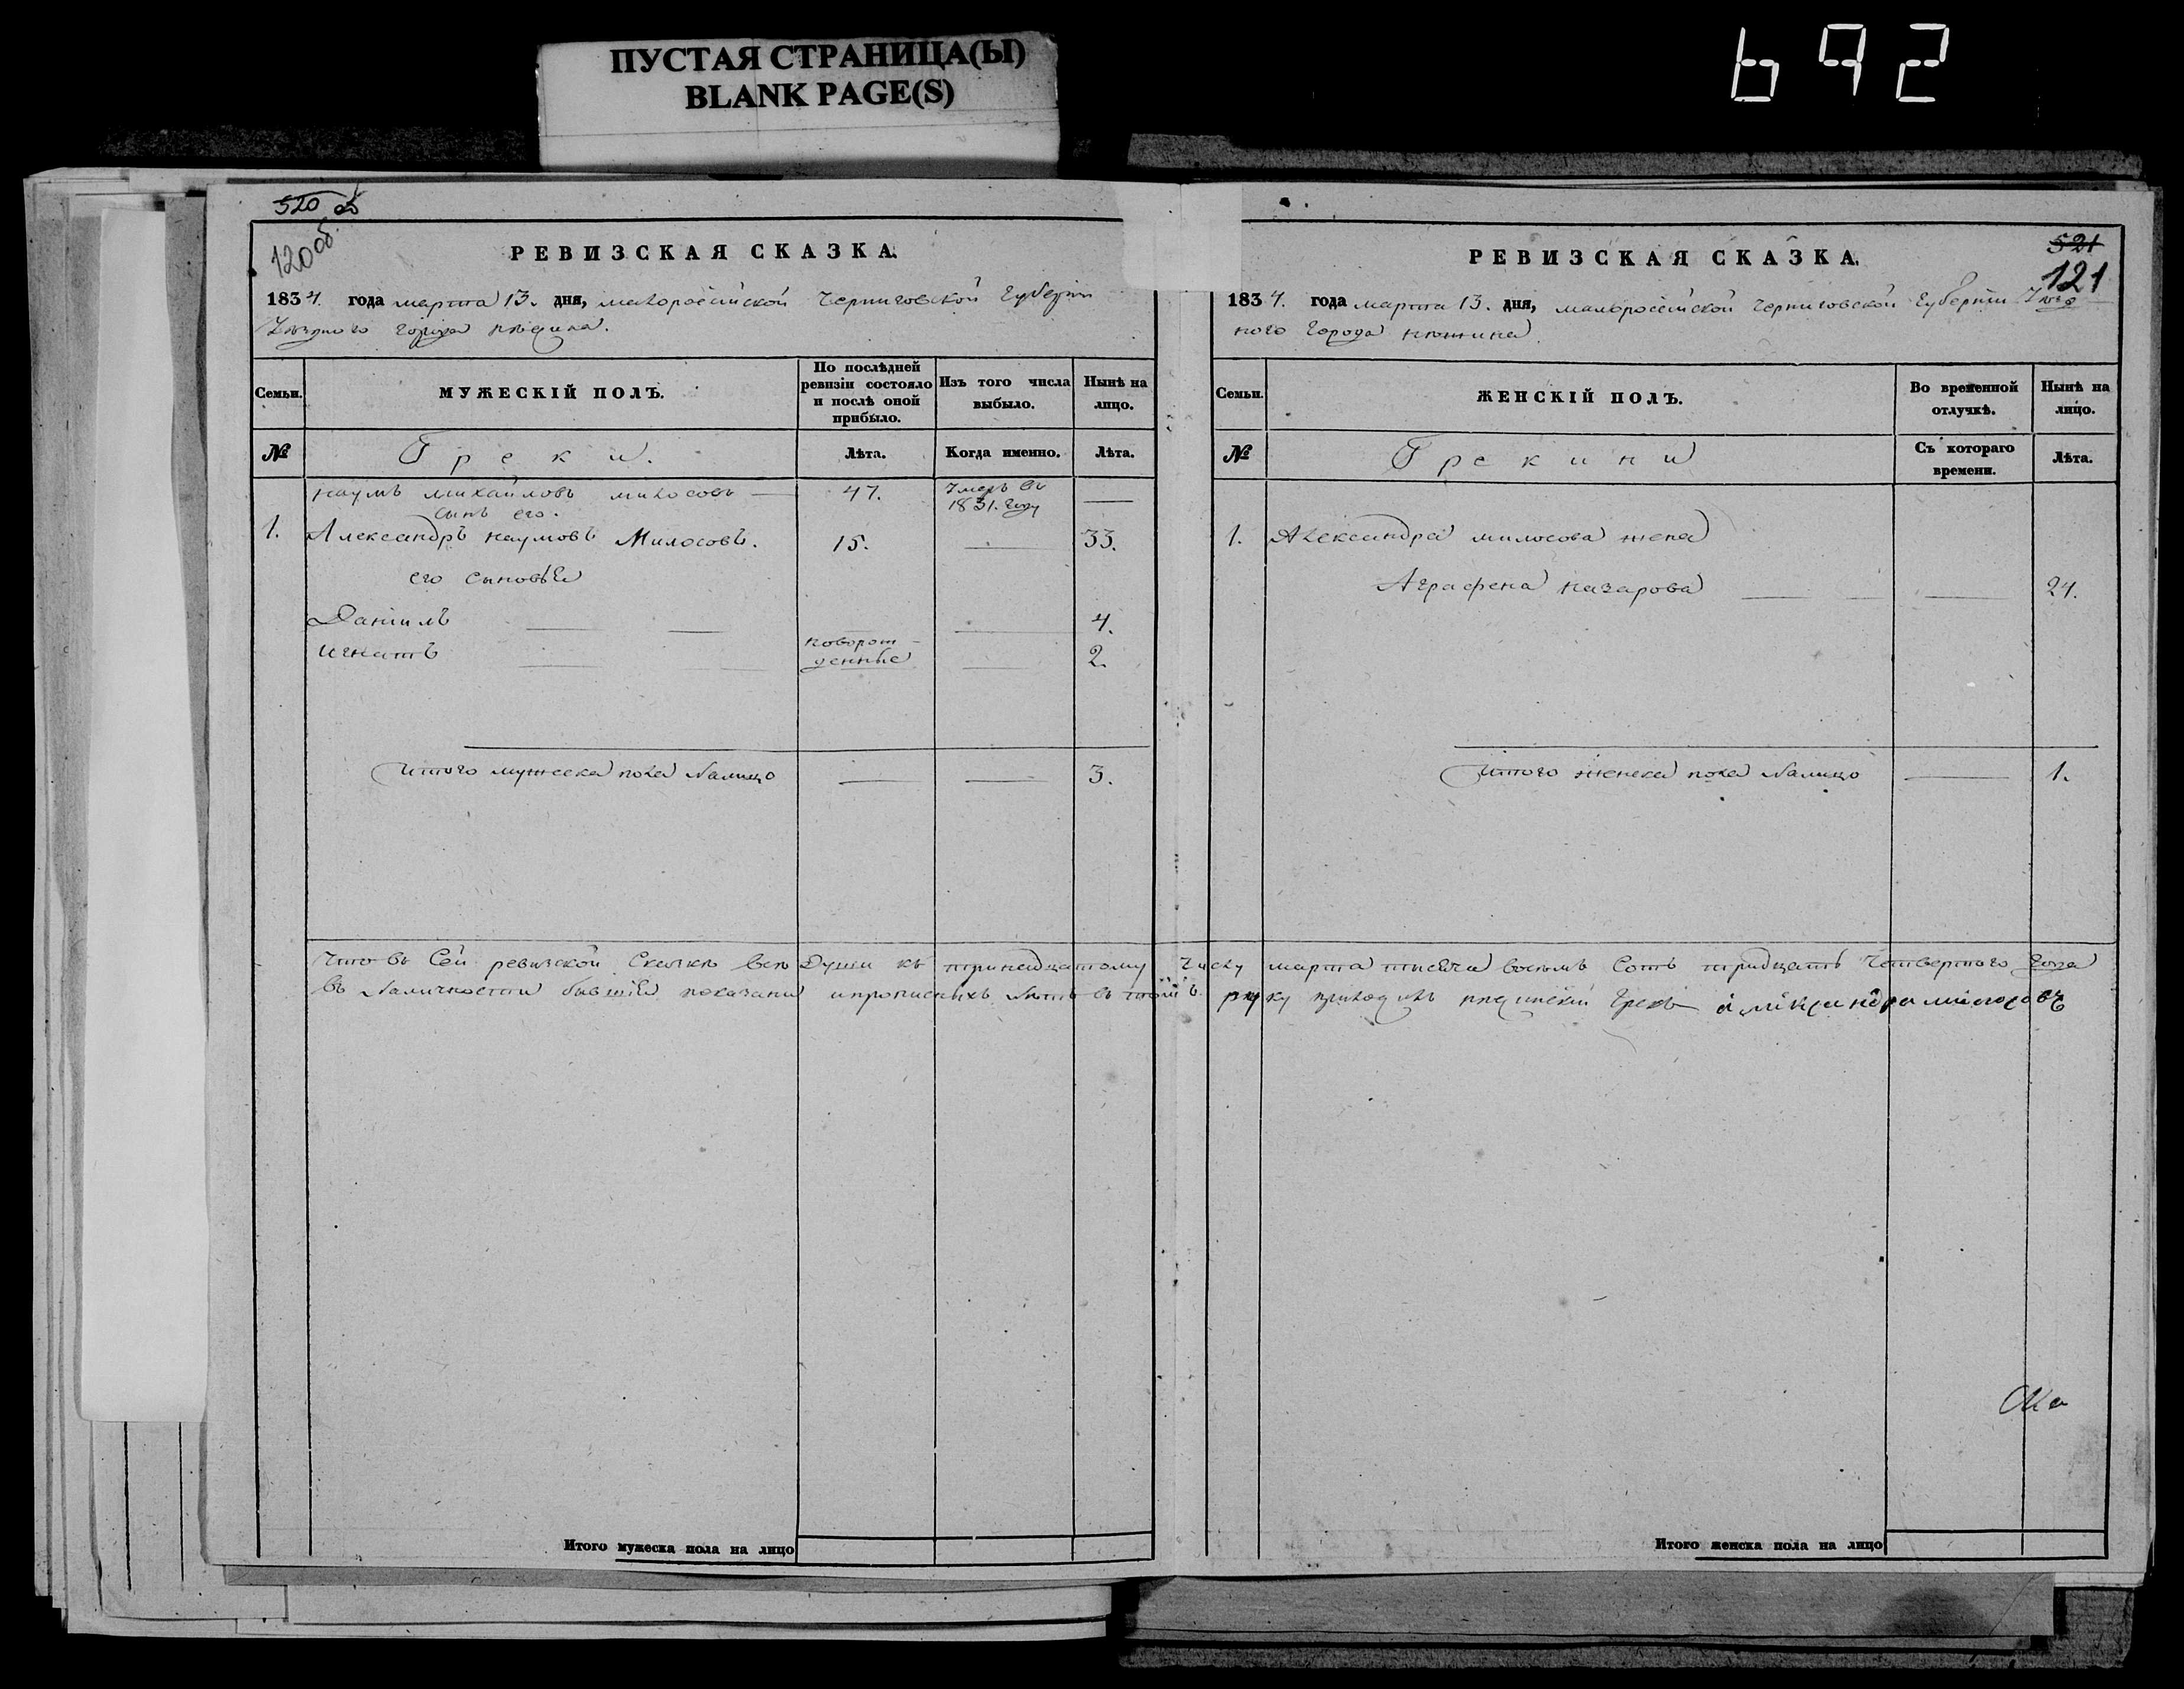 ПУСТАЯ СТРАНИЦА(Ы)
BLANK PAGE(S)
692
520 об
120 об.
РЕВИЗСКАЯ СКАЗКА.
1834. года марта 13. дня, малоросѣйской Черниговской Губерніи
Уѣзднаго города нѣжина.
Семьи.
МУЖЕСКІЙ ПОЛЪ.
По послѣдней ревизіи состояло и послѣ оной прибыло.
Изъ того числа выбыло.
Нынѣ на лицо.
№
Греки.
Лѣта.
Когда именно.
Лѣта.
наумъ михайловъ милосовъ — 47. Умеръ въ 1831. году —
сынъ его.
1. Александръ наумовъ Милосовъ. 15. — 33.
его сыновья
Данiилъ — — — — 4.
игнатъ — — новорож-денные — 2.
Итого мужеска пола налицо — — 3.
521
121
РЕВИЗСКАЯ СКАЗКА.
1834. года марта 13. дня, малоросѣйской Черниговской Губерніи Уѣзд
ного города нѣжина
Семьи.
ЖЕНСКІЙ ПОЛЪ.
Во временной отлучкѣ.
Нынѣ на лицо.
№
Грекини
Съ котораго времени.
Лѣта.
1. Александра милосова жена
Аграфена назарова — — — 24.
Итого женска пола налицо — 1.
Что въ Сей ревизской Сказкѣ всѣ Души къ тринадцатому числу марта тысяча восемь Сотъ тридцать Четвертого года
въ наличности бывшiя показаны и прописныхъ нѣтъ въ томъ руку приложилъ нѣжинскiй Грекъ александра милосовъ
Итого мужеска пола на лицо
Итого женска пола на лицо